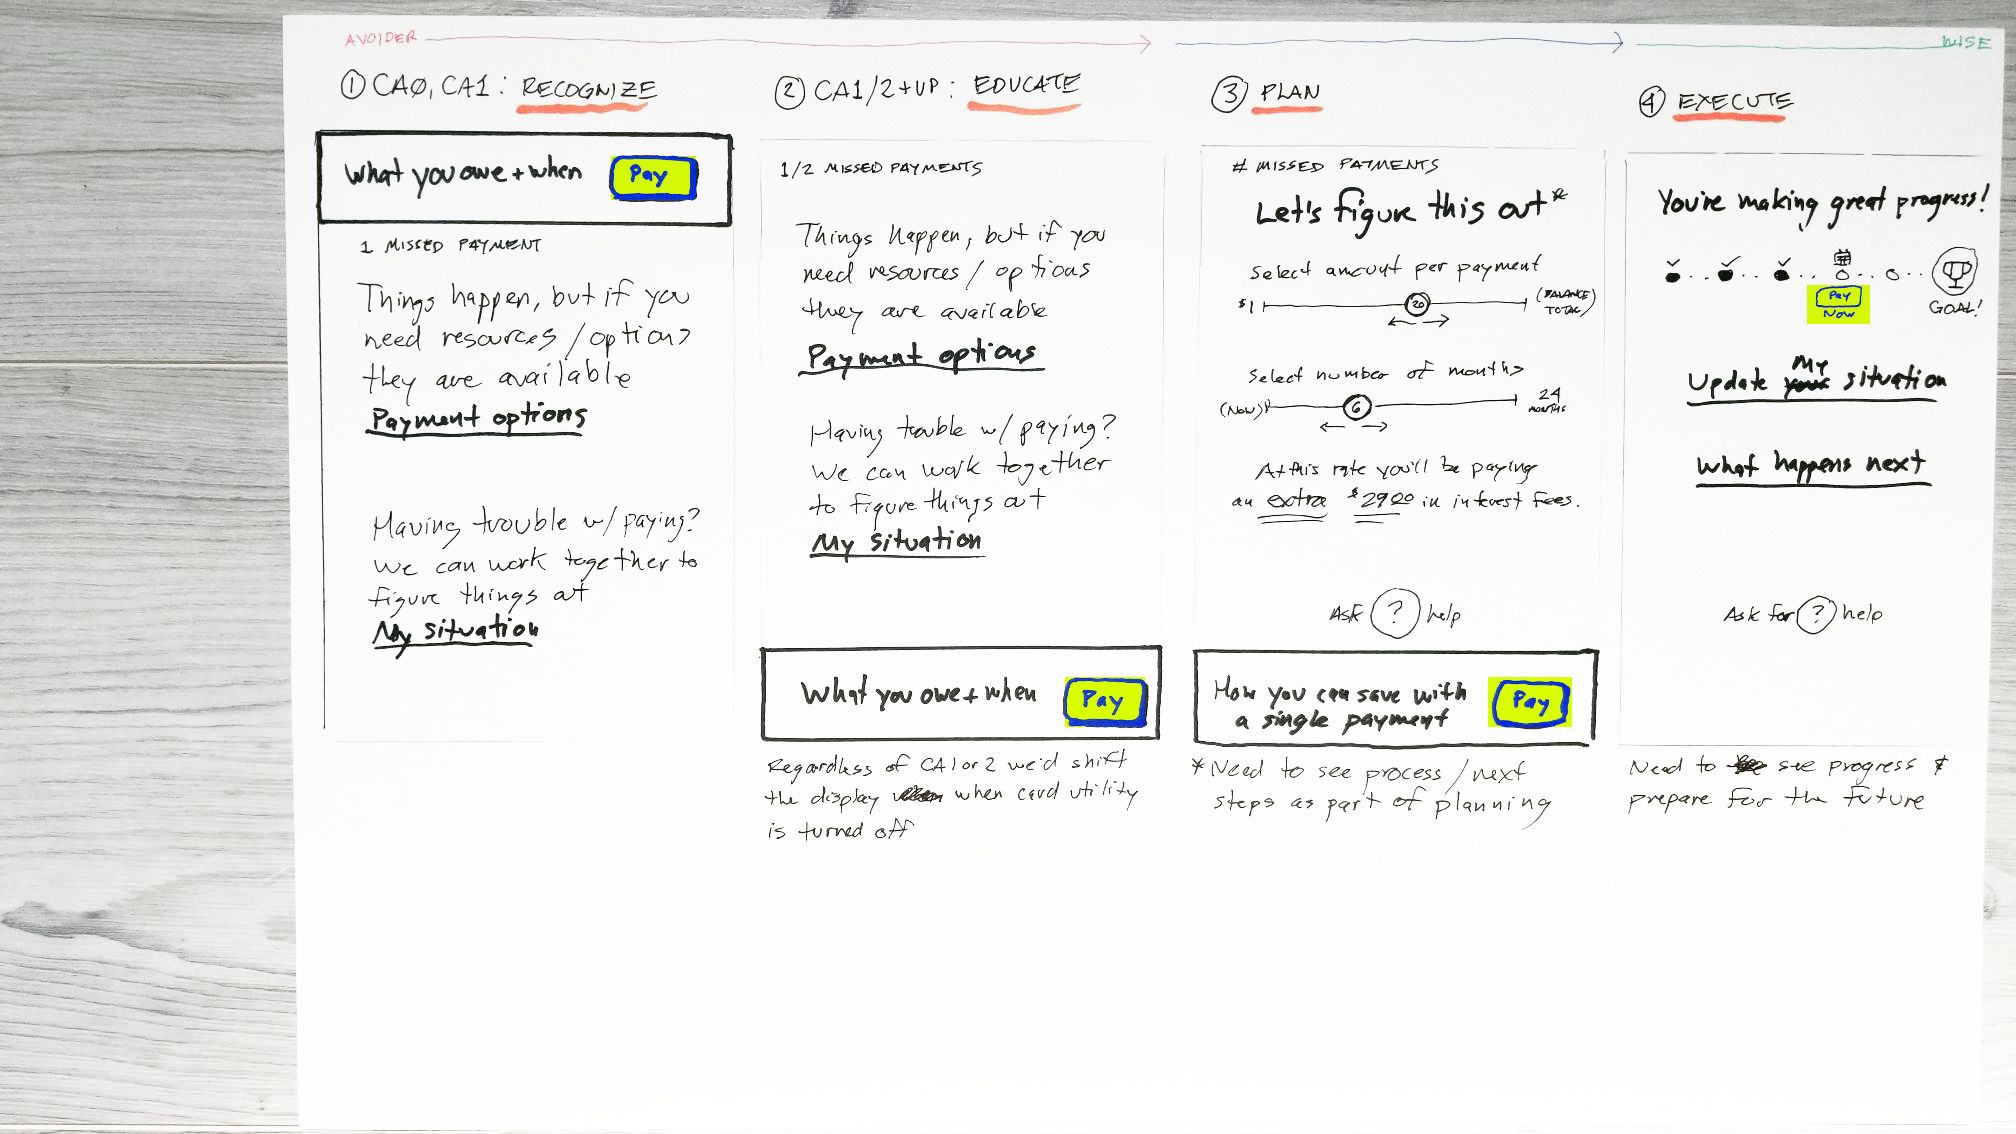 AVOIDER
WISE
① CAØ, CA1: RECOGNIZE
What you owe + when
Pay
1 MISSED PAYMENT
Things happen, but if you
need resources / options
they are available
Payment options
Having trouble w/ paying?
We can work together to
figure things out
My situation
② CA1/2+UP: EDUCATE
1/2 MISSED PAYMENTS
Things happen, but if you
need resources / options
they are available
Payment options
Having trouble w/ paying?
We can work together
to figure things out
My situation
What you owe + when
Pay
Regardless of CA1 or 2 we'd shift
the display when card utility
is turned off
③ PLAN
# MISSED PAYMENTS
Let's figure this out*
Select amount per payment
$1
20
(BALANCE TOTAL)
Select number of months
(NOW)
6
24 MONTHS
At this rate you'll be paying
an extra $29.00 in interest fees.
ASK ? help
How you can save with
a single payment
Pay
*Need to see process / next
steps as part of planning
④ EXECUTE
You're making great progress!
Pay
Now
GOAL!
My
Update situation
What happens next
Ask for ? help
Need to see progress &
prepare for the future